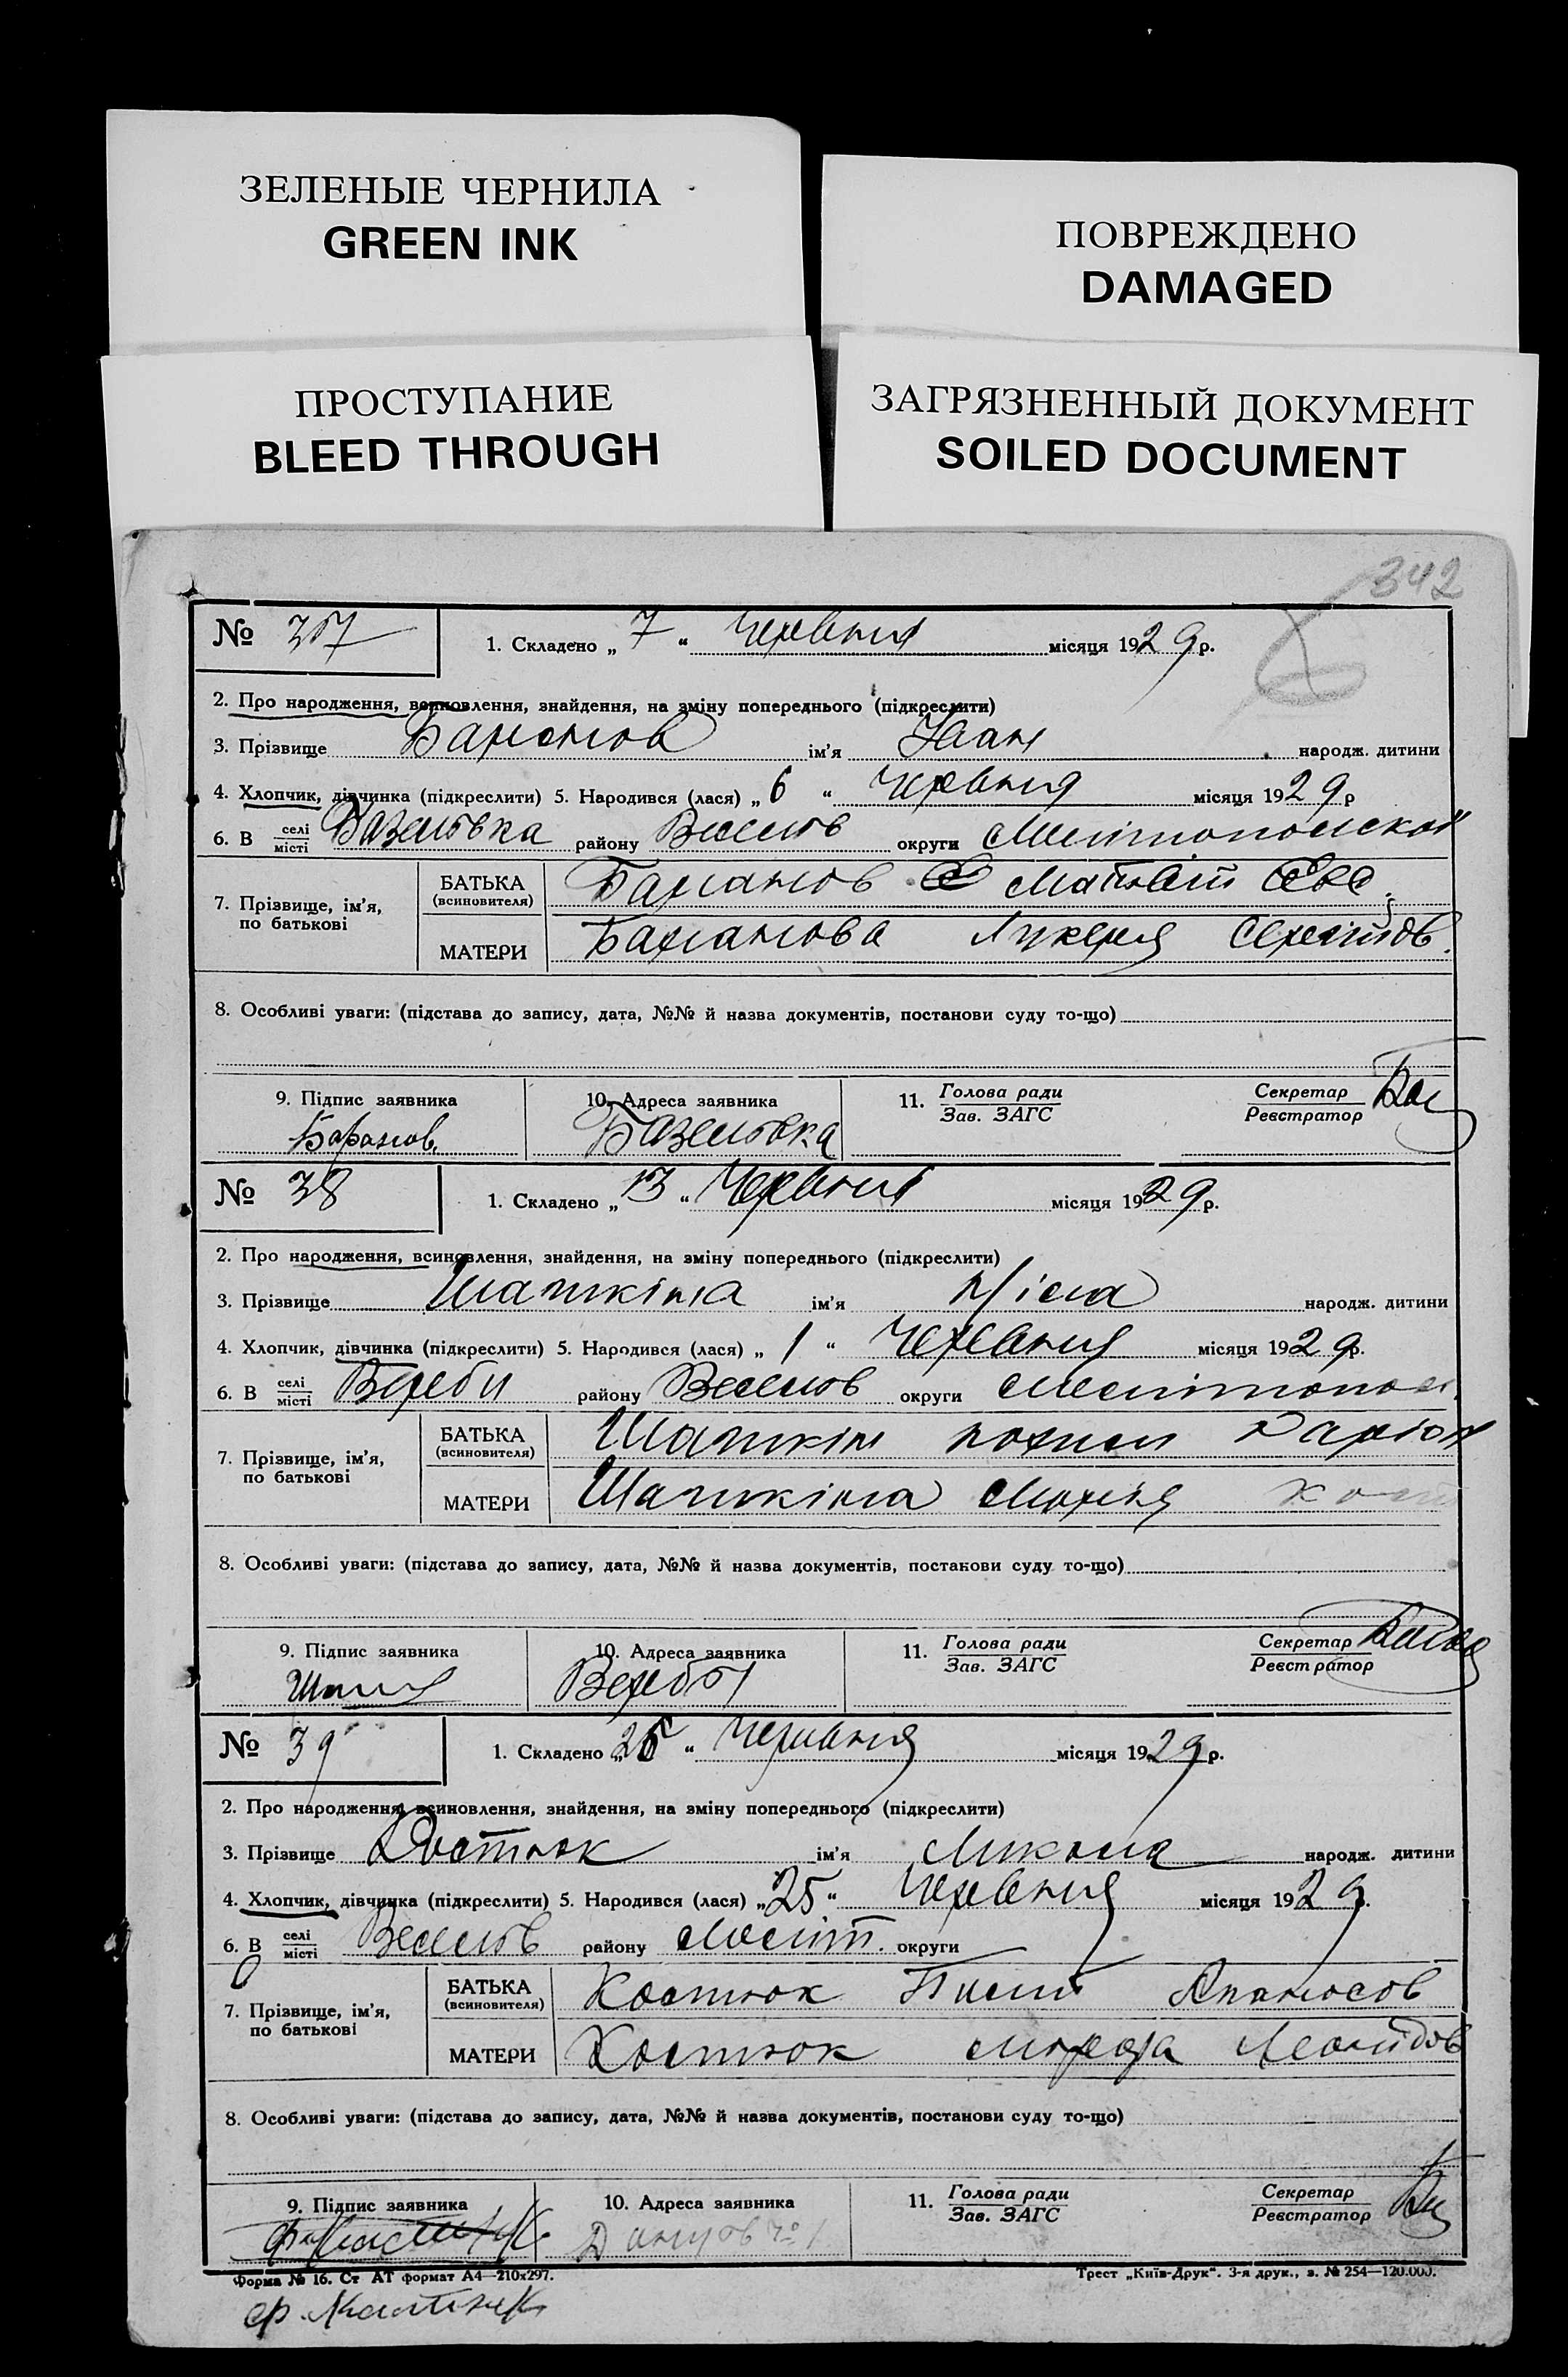 ЗЕЛЕНЫЕ ЧЕРНИЛА
GREEN INK
ПОВРЕЖДЕНО
DAMAGED
ПРОСТУПАНИЕ
BLEED THROUGH
ЗАГРЯЗНЕННЫЙ ДОКУМЕНТ
SOILED DOCUMENT
342
№ 37 1. Складено „ 7 “ Червния місяця 1929 р.
2. Про народження, всиновлення, знайдення, на зміну попереднього (підкреслити)
3. Прізвище Баранов ім'я Иван народж. дитини
4. Хлопчик, дівчинка (підкреслити) 5. Народився (лася) „ 6 “ Червния місяця 1929 р
6. В селі місті району Веселов округи Мелітопольской
7. Прізвище, ім'я, по батькові БАТЬКА (всиновителя) Баранов Матвій
МАТЕРИ Баранова Лукеря
8. Особливі уваги: (підстава до запису, дата, №№ й назва документів, постанови суду то-що)
9. Підпис заявника 10. Адреса заявника 11. Голова ради Зав. ЗАГС Секретар Реєстратор
Баранов
№ 38 1. Складено „ 13 “ Червния місяця 1929 р.
2. Про народження, всиновлення, знайдення, на зміну попереднього (підкреслити)
3. Прізвище Шапкіна ім'я народж. дитини
4. Хлопчик, дівчинка (підкреслити) 5. Народився (лася) „ 1 “ Червния місяця 1929 р.
6. В селі місті Верби району Веселов округи Мелітопол.
7. Прізвище, ім'я, по батькові БАТЬКА (всиновителя) Шапкін
МАТЕРИ Шапкіна
8. Особливі уваги: (підстава до запису, дата, №№ й назва документів, постанови суду то-що)
9. Підпис заявника 10. Адреса заявника 11. Голова ради Зав. ЗАГС Секретар Реєстратор
№ 39 1. Складено „ 25 “ Червния місяця 1929 р.
2. Про народження, всиновлення, знайдення, на зміну попереднього (підкреслити)
3. Прізвище Костюк ім'я Микола народж. дитини
4. Хлопчик, дівчинка (підкреслити) 5. Народився (лася) „ 25 “ Червния місяця 1929 р.
6. В селі місті Веселов району Меліт. округи
7. Прізвище, ім'я, по батькові БАТЬКА (всиновителя) Костюк Пилип Апанасов
МАТЕРИ Костюк Леонідов
8. Особливі уваги: (підстава до запису, дата, №№ й назва документів, постанови суду то-що)
9. Підпис заявника 10. Адреса заявника 11. Голова ради Зав. ЗАГС Секретар Реєстратор
Форма № 16. Ст АТ формат А4—210x297. Трест „Київ-Друк“. 3-я друк., з. № 254—120.000.